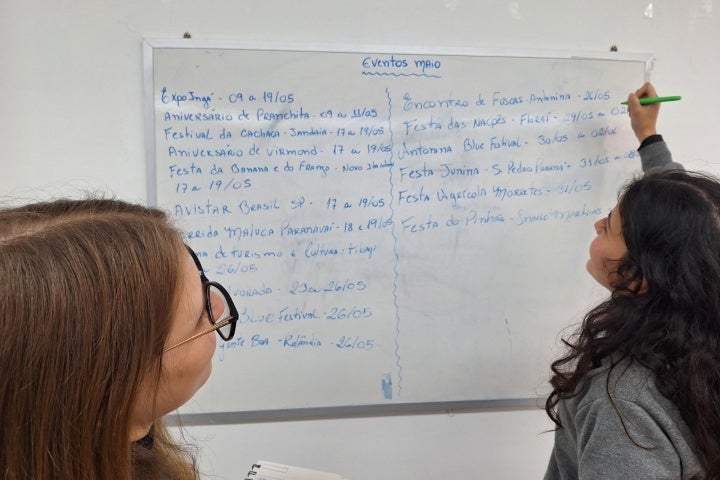 Eventos maio
Expo Ingá - 09 a 19/05
Aniversário de Pranchita - 09 a
Festival da Cachaça - Jandaia - 17 a 19/05
Aniversário de Virmond - 17 a 19/05
Festa da Banana e do Frango - Novo Itacolomi
17 a 19/05
Avistar Brasil SP - 17 a 19/05
Maluca Paranavaí - 18 e 19/05
de turismo e Cultura - Tibagi
26/05
23 a 26/05
Blue Festival - 26/05
Boa - Rolândia - 26/05
Encontro de Fuscas - Antonina - 26/05
Festa das Nações - Floraí - 29/05 a 02
Antonina Blue Festival - 30/05 a 02/06
Festa Junina - S. Pedro Paraná - 31/05 a
Festa Agrícola Morretes - 31/05
Festa do Pinhão - Inácio Martins